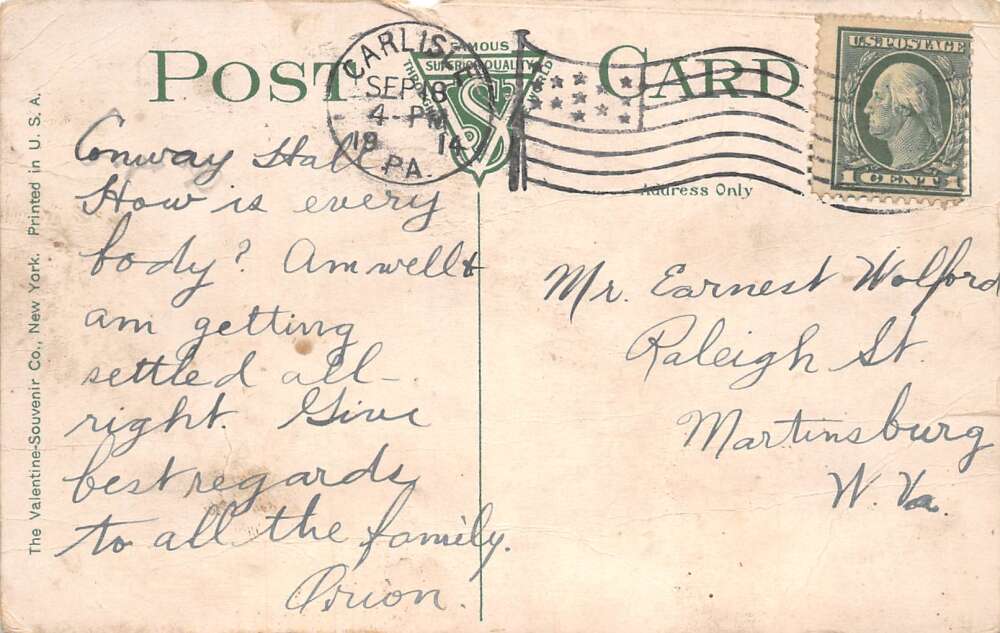 POST CARD
FAMOUS
SUPERIOR QUALITY
THROUGHOUT
WORLD
CARLISLE
SEP 18
4-PM
1914
PA.
U.S. POSTAGE
1 CENT 1
Address Only
The Valentine-Souvenir Co., New York. Printed in U. S. A.
Conway Hall
How is every
body? Am well &
am getting
settled all-
right. Give
best regards
to all the family.
Orion.
Mr. Earnest Wolford
Raleigh St.
Martinsburg
W. Va.